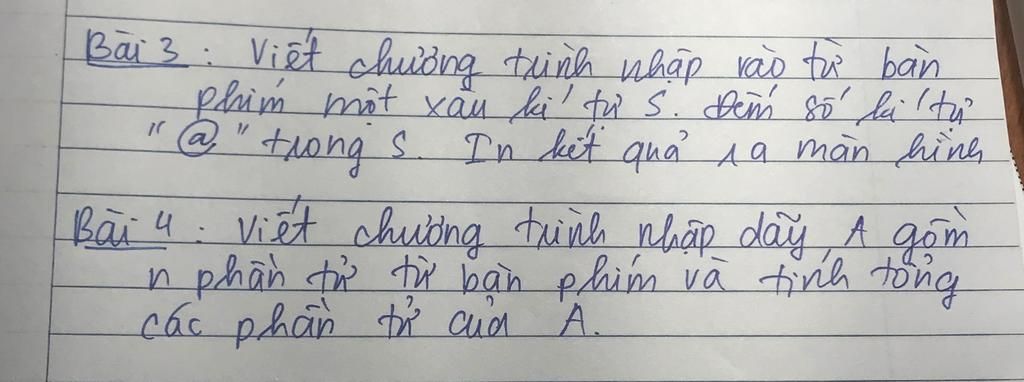 Bài 3 : Viết chương trình nhập vào từ bàn
phím một xâu kí tự S. Đếm số kí tự
"@" trong S. In kết quả ra màn hình
Bài 4 : Viết chương trình nhập dãy A gồm
n phần tử từ bàn phím và tính tổng
các phần tử của A.